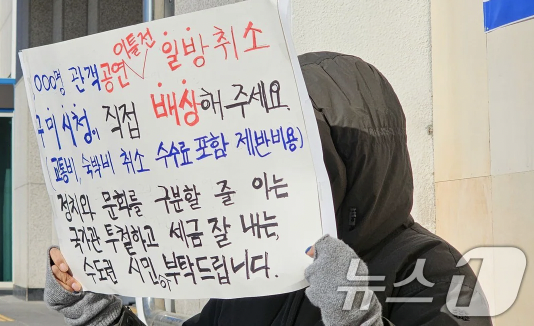 이틀전
000명 관객공연 일방취소
구미시청이 직접 배상해 주세요.
(교통비, 숙박비 취소 수수료 포함 제반비용)
정치와 문화를 구분할 줄 아는
국가관 투철하고 세금 잘 내는,
수도권 시민이 부탁드립니다.
뉴스1